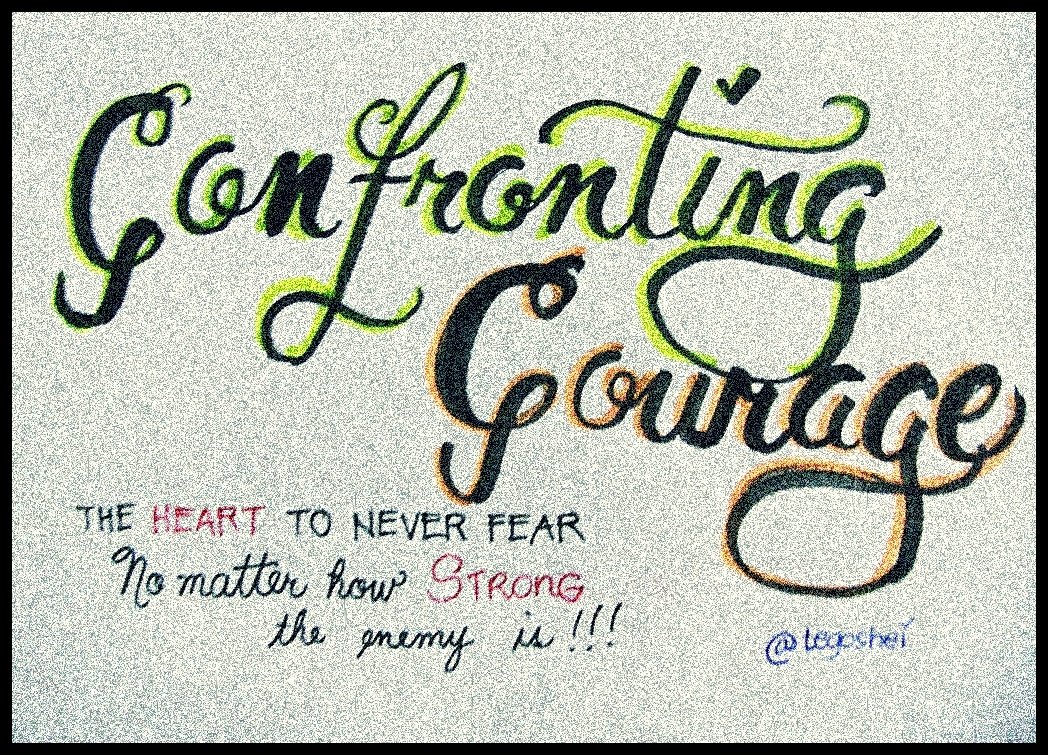 Confronting
Courage
THE HEART TO NEVER FEAR
No matter how STRONG
the enemy is!!!